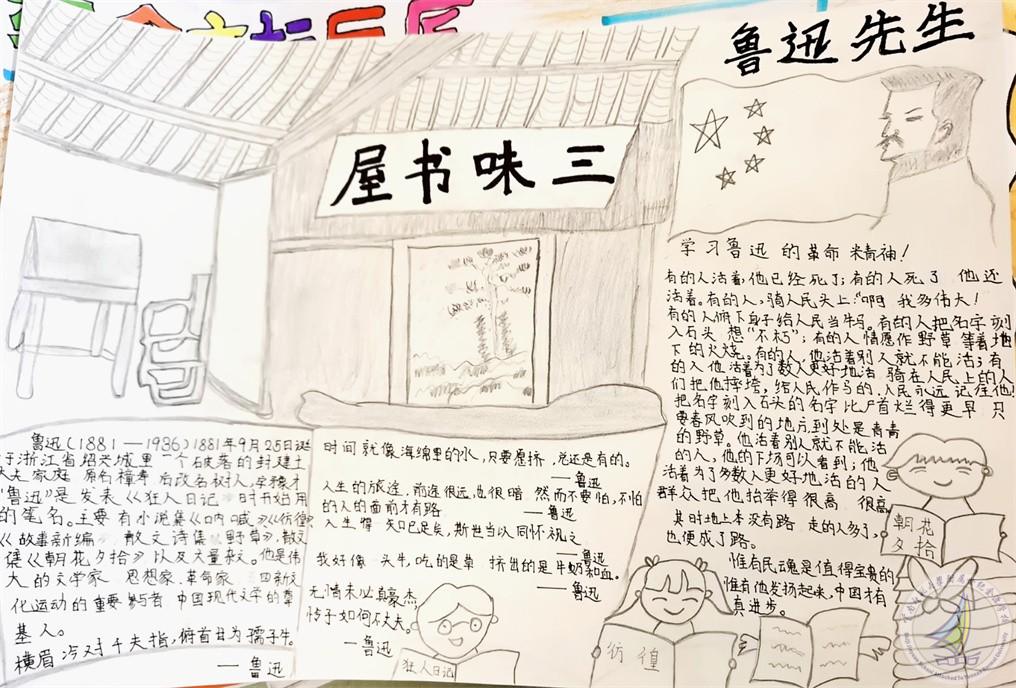 鲁迅先生
屋书味三
学习鲁迅的革命精神!
有的人活着,他已经死了;有的人死了 他还
活着。有的人,骑人民头上:"啊 我多伟大!
有的人俯下身子给人民当牛马。有的人把名字刻
入石头 想"不朽";有的人情愿作野草 等着地
下的火烧。有的人,他活着别人就不能活;有
的人他活着为了数人更好地活 骑在人民上的人
们把他摔垮,给人民作马的,人民永远记住他!
把名字刻入石头的名字比尸首烂得更早 只
要春风吹到的地方,到处是青青
的野草。他活着别人就不能活
的人,他的下场可以看到;他
活着为了多数人更好地活的人
群众把他抬举得很高 很高
其时地上本没有路 走的人多了,
也便成了路。
惟有民魂是值得宝贵的
惟有他发扬起来,中国才有
真进步。
鲁迅(1881—1936)1881年9月25日诞
于浙江省绍兴城里一个破落的封建士
大夫家庭 原名樟寿 后改名树人,字豫才
"鲁迅"是发表《狂人日记》时开始用
的笔名。主要有小说集《呐喊》《彷徨
《故事新编》 散文诗集《野草》,散文
集《朝花夕拾》以及大量杂文。他是伟
大的文学家 思想家、革命家 五四新文
化运动的重要参与者 中国现代文学的奠
基人。
横眉冷对千夫指,俯首甘为孺子牛。
—鲁迅
时间就像海绵里的水,只要愿挤,总还是有的。
—鲁迅
人生的旅途,前途很远,也很暗 然而不要怕,不怕
的人的面前才有路 —鲁迅
人生得一知己足矣,斯世当以同怀视之
—鲁迅
我好像一头牛,吃的是草 挤出的是牛奶和血。
—鲁迅
无情未必真豪杰
怜子如何不丈夫。
—鲁迅
狂人日记
彷徨
朝花
夕拾